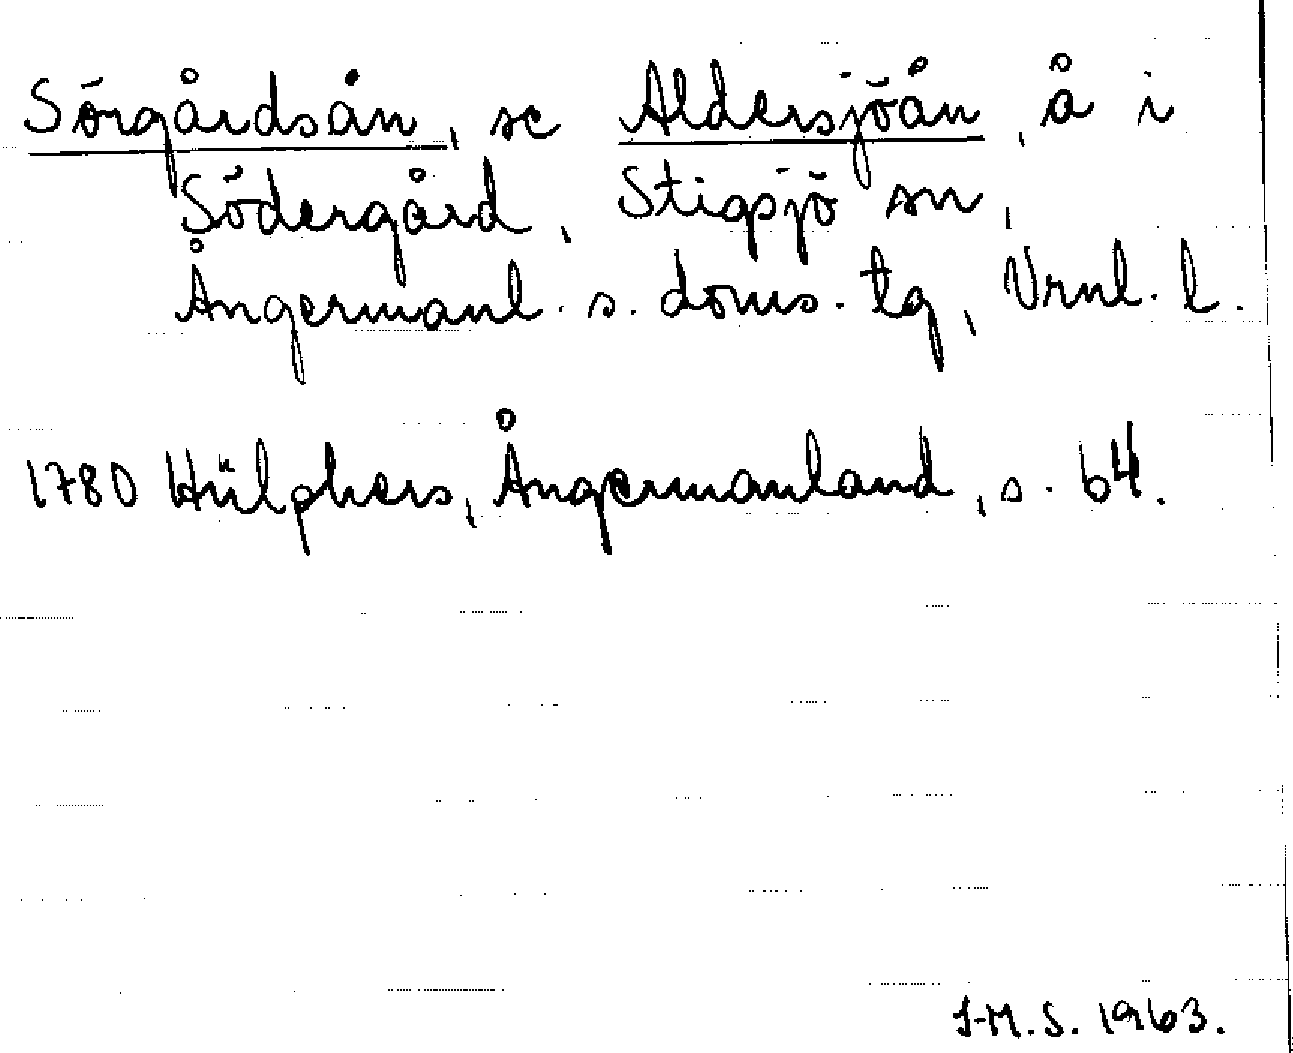 Sörgårdsån, se Aldersjöån, å i
Södergård, Stigsjö sn,
Ångermanl. s. doms. tg, Vrnl. l.
1780 Hülphers, Ångermanland, s. 64.
I-M.S. 1963.